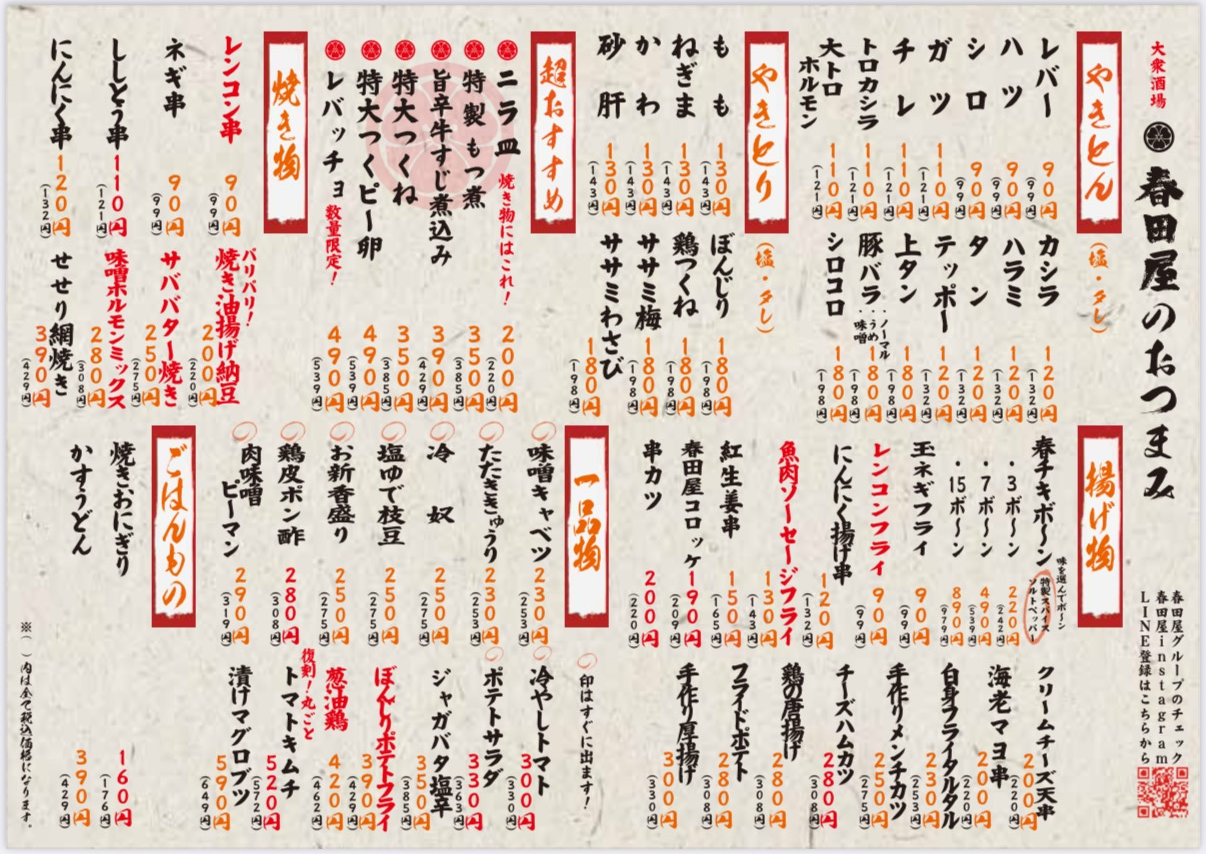 大衆酒場
春田屋のおつまみ
春田屋グループのチェック
春田屋instagram
LINE登録はこちらから
やきとん
(塩・タレ)
レバー 90円 (99円)
ハツ 90円 (99円)
シロ 90円 (99円)
ガツ 110円 (121円)
チレ 110円 (121円)
トロカシラ 110円 (121円)
大トロホルモン 110円 (121円)
カシラ 120円 (132円)
ハラミ 120円 (132円)
タン 120円 (132円)
テッポー 120円 (132円)
上タン 180円 (198円)
豚バラ ・ノーマル ・うめ ・味噌 180円 (198円)
シロコロ 180円 (198円)
やきとり
(塩・タレ)
もも 130円 (143円)
ねぎま 130円 (143円)
かわ 130円 (143円)
砂肝 130円 (143円)
ぼんじり 180円 (198円)
鶏つくね 180円 (198円)
ササミ梅 180円 (198円)
ササミわさび 180円 (198円)
超おすすめ
ニラ皿 焼き物にはこれ! 200円 (220円)
特製もつ煮 350円 (385円)
旨辛牛すじ煮込み 390円 (429円)
特大つくね 350円 (385円)
特大つくピー卵 490円 (539円)
レバッチョ 数量限定! 490円 (539円)
焼き物
レンコン串 90円 (99円)
ネギ串 90円 (99円)
ししとう串 110円 (121円)
にんにく串 120円 (132円)
パリパリ!
焼き油揚げ納豆 200円 (220円)
サババター焼き 250円 (275円)
味噌ホルモンミックス 280円 (308円)
せせり網焼き 390円 (429円)
揚げ物
春チキボ〜ン 味を選んでボ〜ン 特製スパイス ソルトペッパー
・3ボ〜ン 220円 (242円)
・7ボ〜ン 490円 (539円)
・15ボ〜ン 890円 (979円)
玉ネギフライ 90円 (99円)
レンコンフライ 90円 (99円)
にんにく揚げ串 120円 (132円)
魚肉ソーセージフライ 130円 (143円)
紅生姜串 150円 (165円)
春田屋コロッケ 190円 (209円)
串カツ 200円 (220円)
クリームチーズ天串 200円 (220円)
海老マヨ串 200円 (220円)
白身フライタルタル 230円 (253円)
手作りメンチカツ 250円 (275円)
チーズハムカツ 280円 (308円)
鶏の唐揚げ 280円 (308円)
フライドポテト 280円 (308円)
手作り厚揚げ 300円 (330円)
一品物
○印はすぐに出ます!
味噌キャベツ 230円 (253円)
たたききゅうり 230円 (253円)
冷奴 250円 (275円)
塩ゆで枝豆 250円 (275円)
お新香盛り 250円 (275円)
鶏皮ポン酢 280円 (308円)
肉味噌ピーマン 290円 (319円)
冷やしトマト 300円 (330円)
ポテトサラダ 330円 (363円)
ジャガバタ塩辛 350円 (385円)
ぼんじりポテトフライ 390円 (429円)
葱油鶏 420円 (462円)
復刻!丸ごと
トマトキムチ 520円 (572円)
漬けマグロブツ 590円 (649円)
ごはんもの
焼きおにぎり 160円 (176円)
かすうどん 390円 (429円)
※( )内は全て税込価格になります。